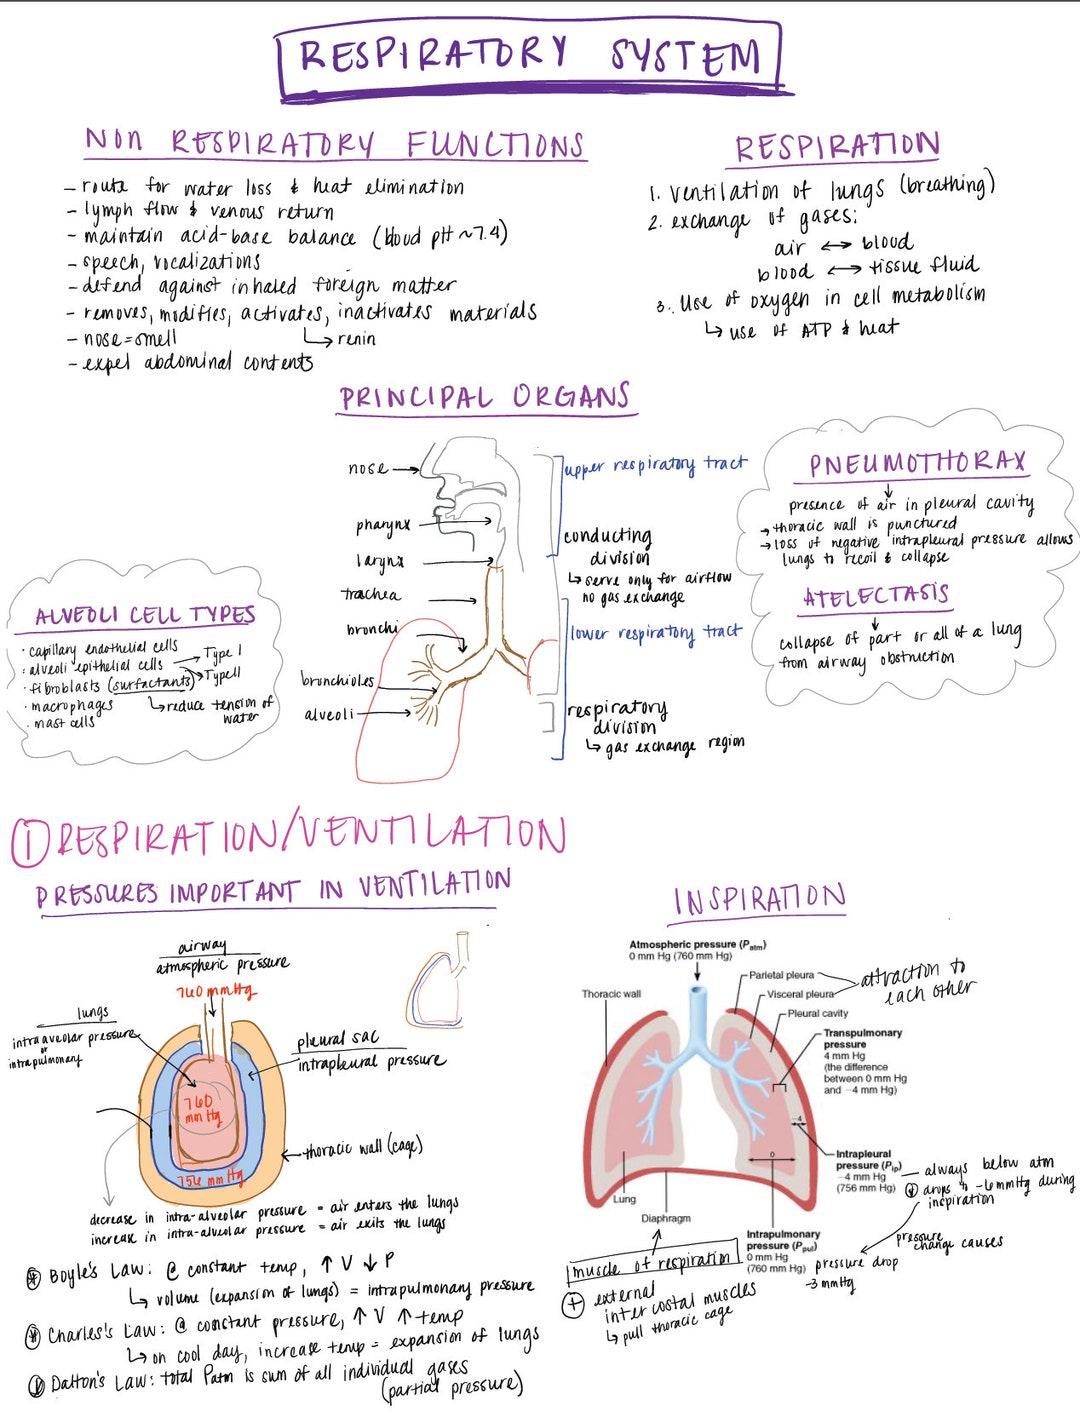 RESPIRATORY SYSTEM
NON RESPIRATORY FUNCTIONS
- route for water loss & heat elimination
- lymph flow & venous return
- maintain acid-base balance (blood pH ~7.4)
- speech, vocalizations
- defend against inhaled foreign matter
- removes, modifies, activates, inactivates materials
↳ renin
- nose = smell
- expel abdominal contents
RESPIRATION
1. ventilation of lungs (breathing)
2. exchange of gases:
air ↔ blood
blood ↔ tissue fluid
3. Use of oxygen in cell metabolism
↳ use of ATP & heat
PRINCIPAL ORGANS
nose →
pharynx
larynx
trachea
bronchi
bronchioles
alveoli
upper respiratory tract
conducting
division
↳ serve only for airflow
no gas exchange
lower respiratory tract
respiratory
division
↳ gas exchange region
PNEUMOTHORAX
↓
presence of air in pleural cavity
→ thoracic wall is punctured
→ loss of negative intrapleural pressure allows
lungs to recoil & collapse
ATELECTASIS
↓
collapse of part or all of a lung
from airway obstruction
ALVEOLI CELL TYPES
· capillary endothelial cells
· alveoli epithelial cells → Type I
→ Type II
· fibroblasts (surfactants)
↳ reduce tension of
water
· macrophages
· mast cells
① RESPIRATION/VENTILATION
PRESSURES IMPORTANT IN VENTILATION
airway
atmospheric pressure
760 mmHg
lungs
intraaveolar pressure
or
intrapulmonary
pleural sac
intrapleural pressure
760
mm Hg
756 mm Hg
thoracic wall (cage)
decrease in intra-alveolar pressure = air enters the lungs
increase in intra-alveolar pressure = air exits the lungs
Boyle's Law: @ constant temp, ↑ V ↓ P
↳ volume (expansion of lungs) = intrapulmonary pressure
Charles's Law: @ constant pressure, ↑ V ↑ temp
↳ on cool day, increase temp = expansion of lungs
Dalton's Law: total Patm is sum of all individual gases
(partial pressure)
INSPIRATION
Atmospheric pressure (Patm)
0 mm Hg (760 mm Hg)
Thoracic wall
Parietal pleura
Visceral pleura
Pleural cavity
attraction to
each other
Transpulmonary
pressure
4 mm Hg
(the difference
between 0 mm Hg
and −4 mm Hg)
−4
0
Intrapleural
pressure (Pip)
−4 mm Hg
(756 mm Hg)
always below atm
drops to -6 mmHg during
inspiration
pressure
change causes
pressure drop
-3 mmHg
Lung
Diaphragm
Intrapulmonary
pressure (Ppul)
0 mm Hg
(760 mm Hg)
muscle of respiration
+ external
intercostal muscles
↳ pull thoracic cage